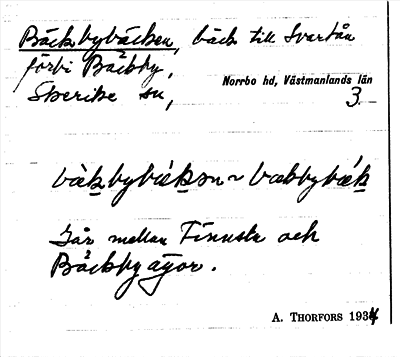 Bäckbybäcken, bäck till Svartån
förbi Bäckby,
Norrbo hd, Västmanlands län
Skerike sn,
3
bäckbybäckən ~ bäckbybäck
Går mellan Finnsta och
Bäckby ägor.
A. THORFORS 1934